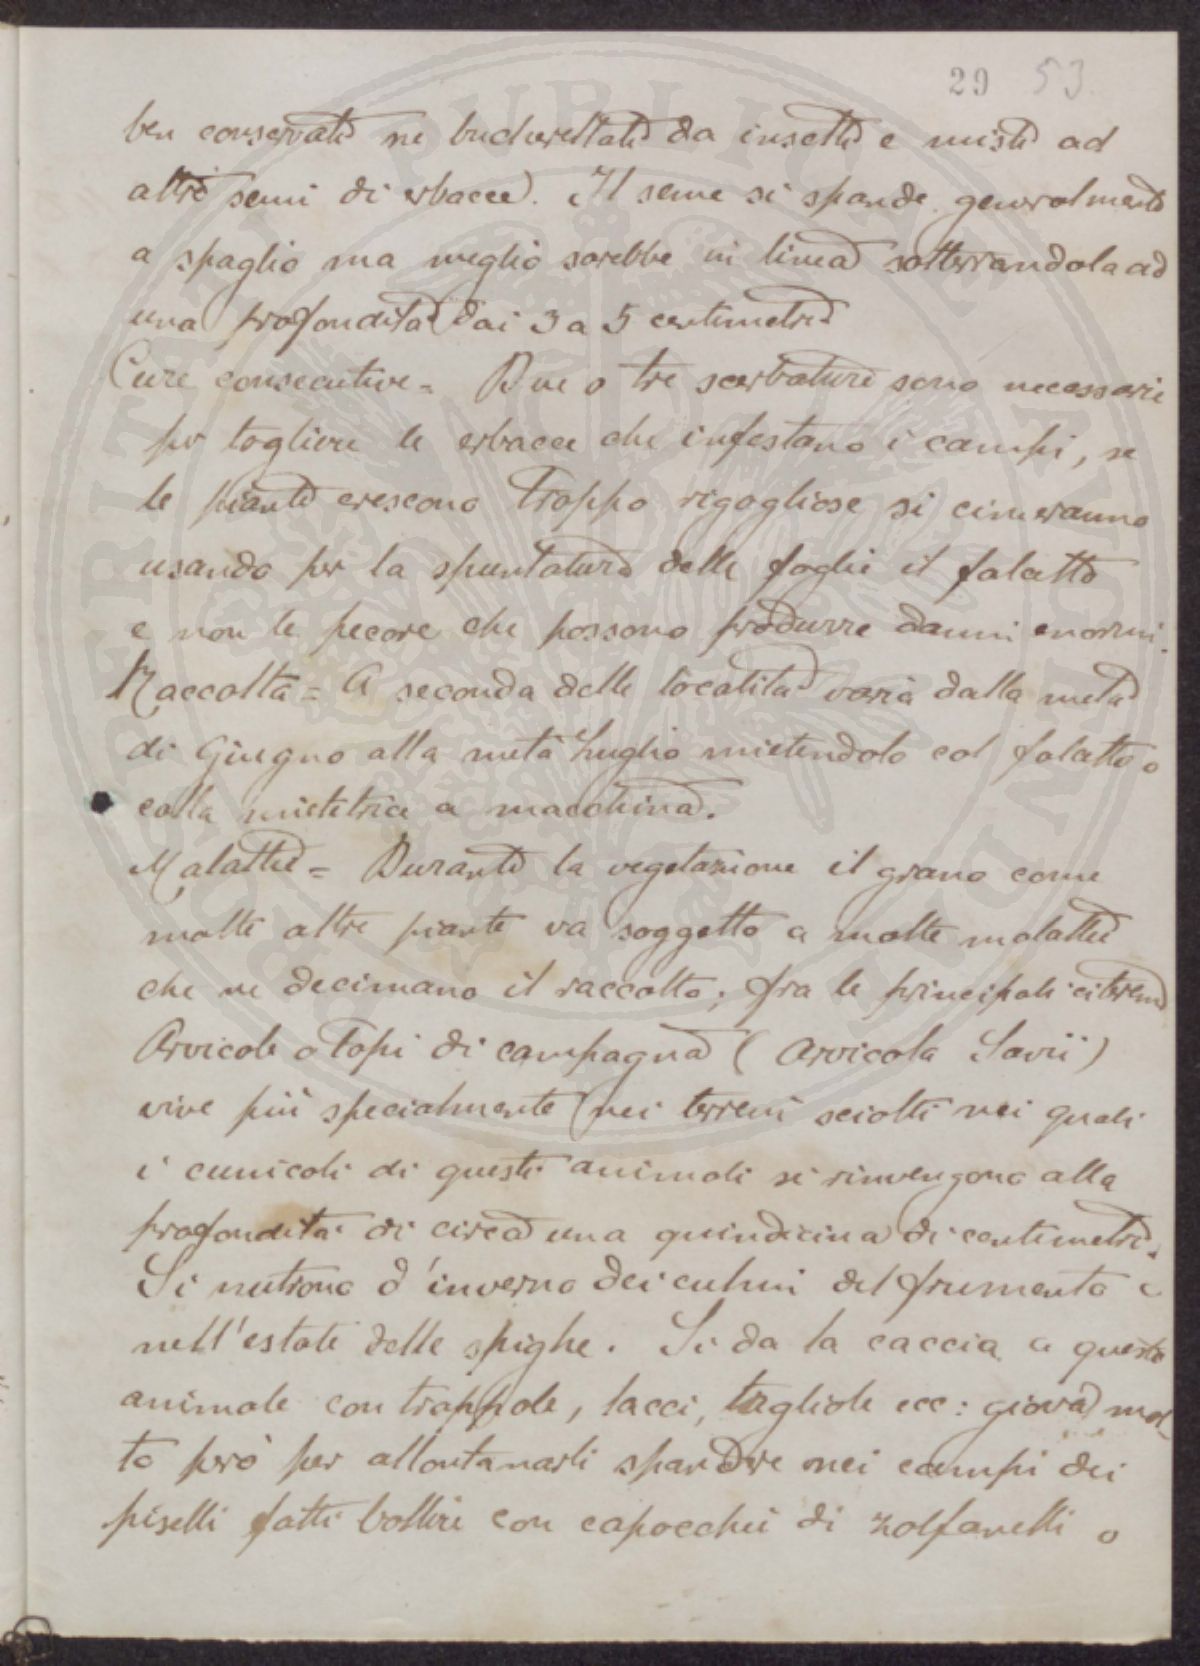 29 53.
ben conservati ne bucherellati da insetti e misti ad
altri semi di erbacce. Il seme si spande generalmente
a spaglio ma meglio sarebbe in linea sotterrandola ad
una profondità dai 3 a 5 centimetri
Cure consecutive = Due o tre scerbature sono necessarie
per togliere le erbacce che infestano i campi, se
le piante crescono troppo rigogliose si cimeranno
usando per la spuntatura delle foglie il falcetto
e non le pecore che possono produrre danni enormi.
Raccolta = A seconda delle località varia dalla metà
di Giugno alla metà Luglio mietendolo col falcetto o
colla mietitrice a macchina.
Malattie = Durante la vegetazione il grano come
molte altre piante va soggetto a molte malattie
che ne decimano il raccolto; fra le principali citeremo
Arvicole o Topi di campagna (Arvicola Savii)
vive più specialmente nei terreni sciolti nei quali
i cunicoli di questi animali si rinvengono alla
profondità di circa una quindicina di centimetri.
Si nutrono d'inverno dei culmi del frumento e
nell'estate delle spighe. Si da la caccia a questo
animale con trappole, lacci, tagliole ecc: giova mol
to però per allontanarli spandere nei campi dei
piselli fatti bollire con capocchie di zolfanelli o
PROSPERITATI PUBLICAE AUGENDAE